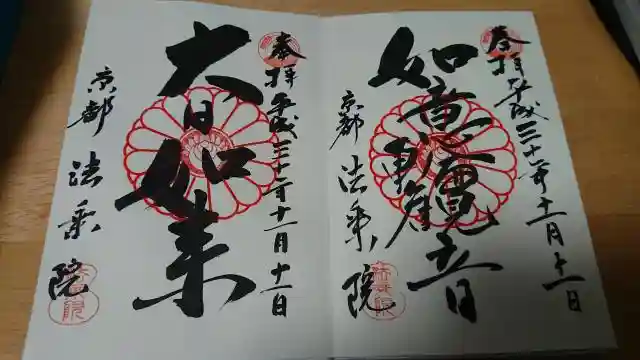 奉拝 平成三十年十一月十一日
如意輪観音
京都 法乗院
奉拝 平成三十年十一月十一日
大日如来
京都 法乗院